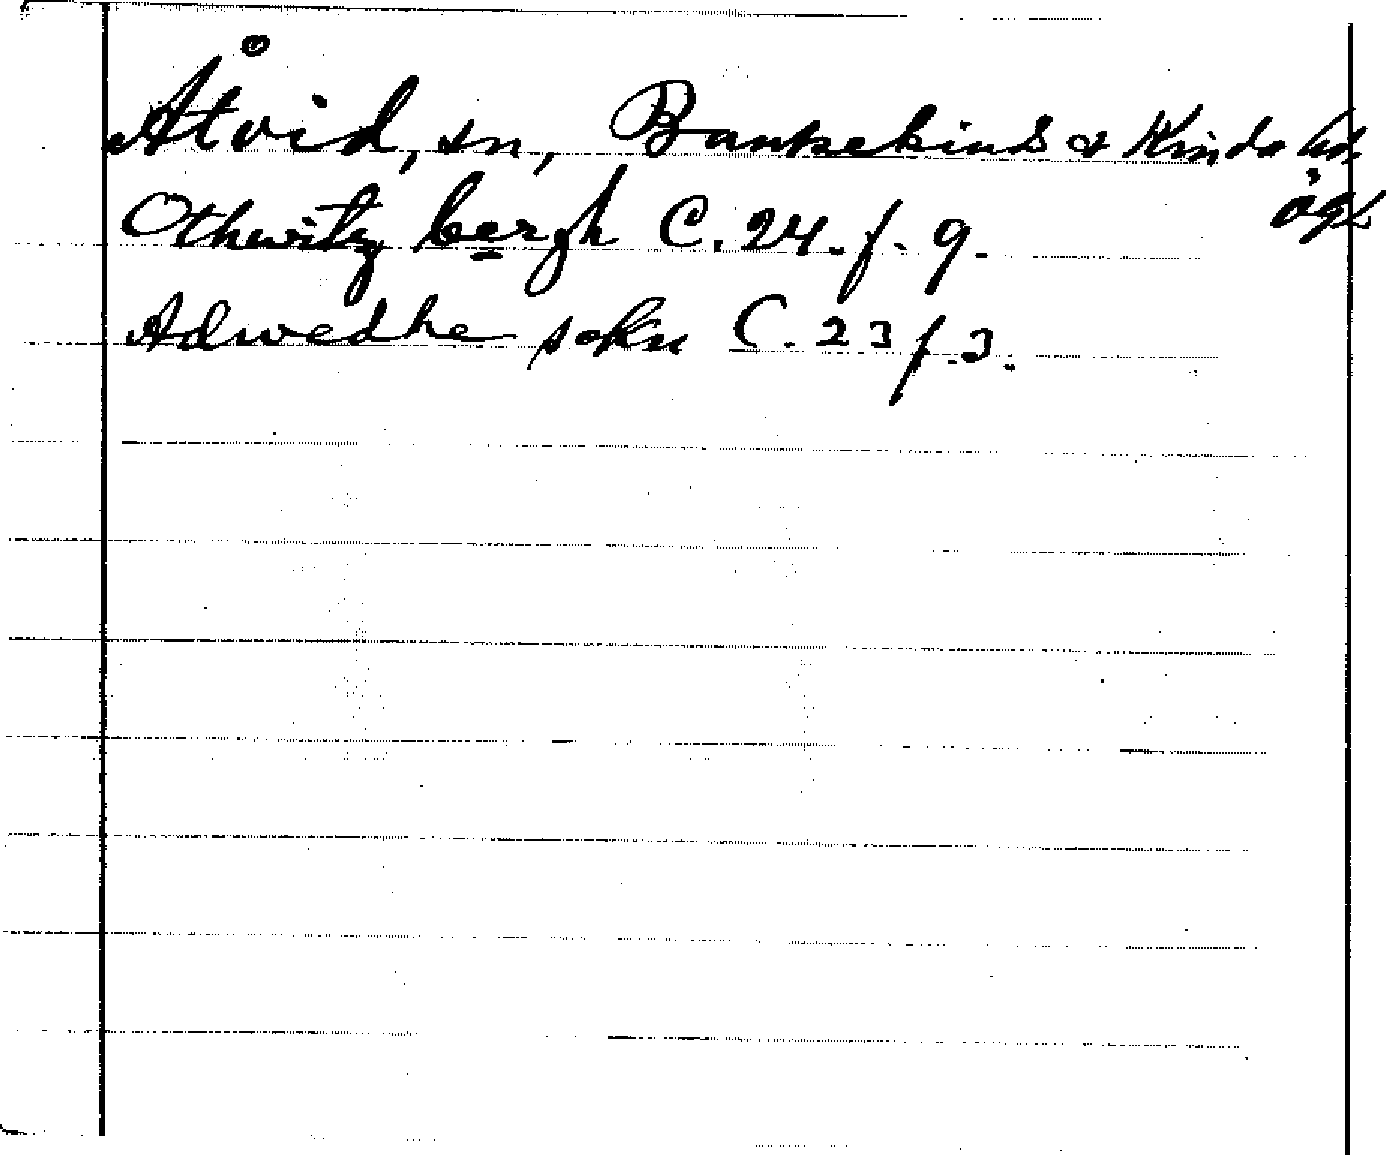 Åtvid, sn, Bankekinds & Kinda hd.
Ögl.
Othwitz bergh C. 24. f. 9.
Adwedhe sokn C. 23 f. 3.